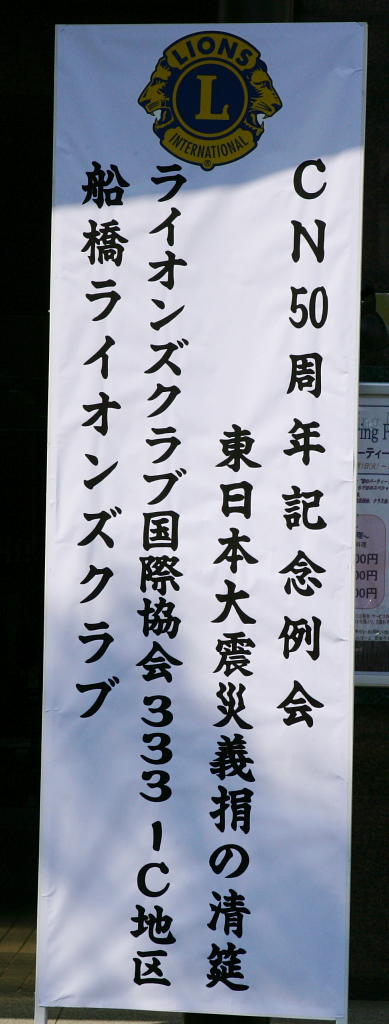 LIONS
L
INTERNATIONAL
CN50周年記念例会
東日本大震災義捐の清筵
ライオンズクラブ国際協会333-C地区
船橋ライオンズクラブ
00円
00円
00円